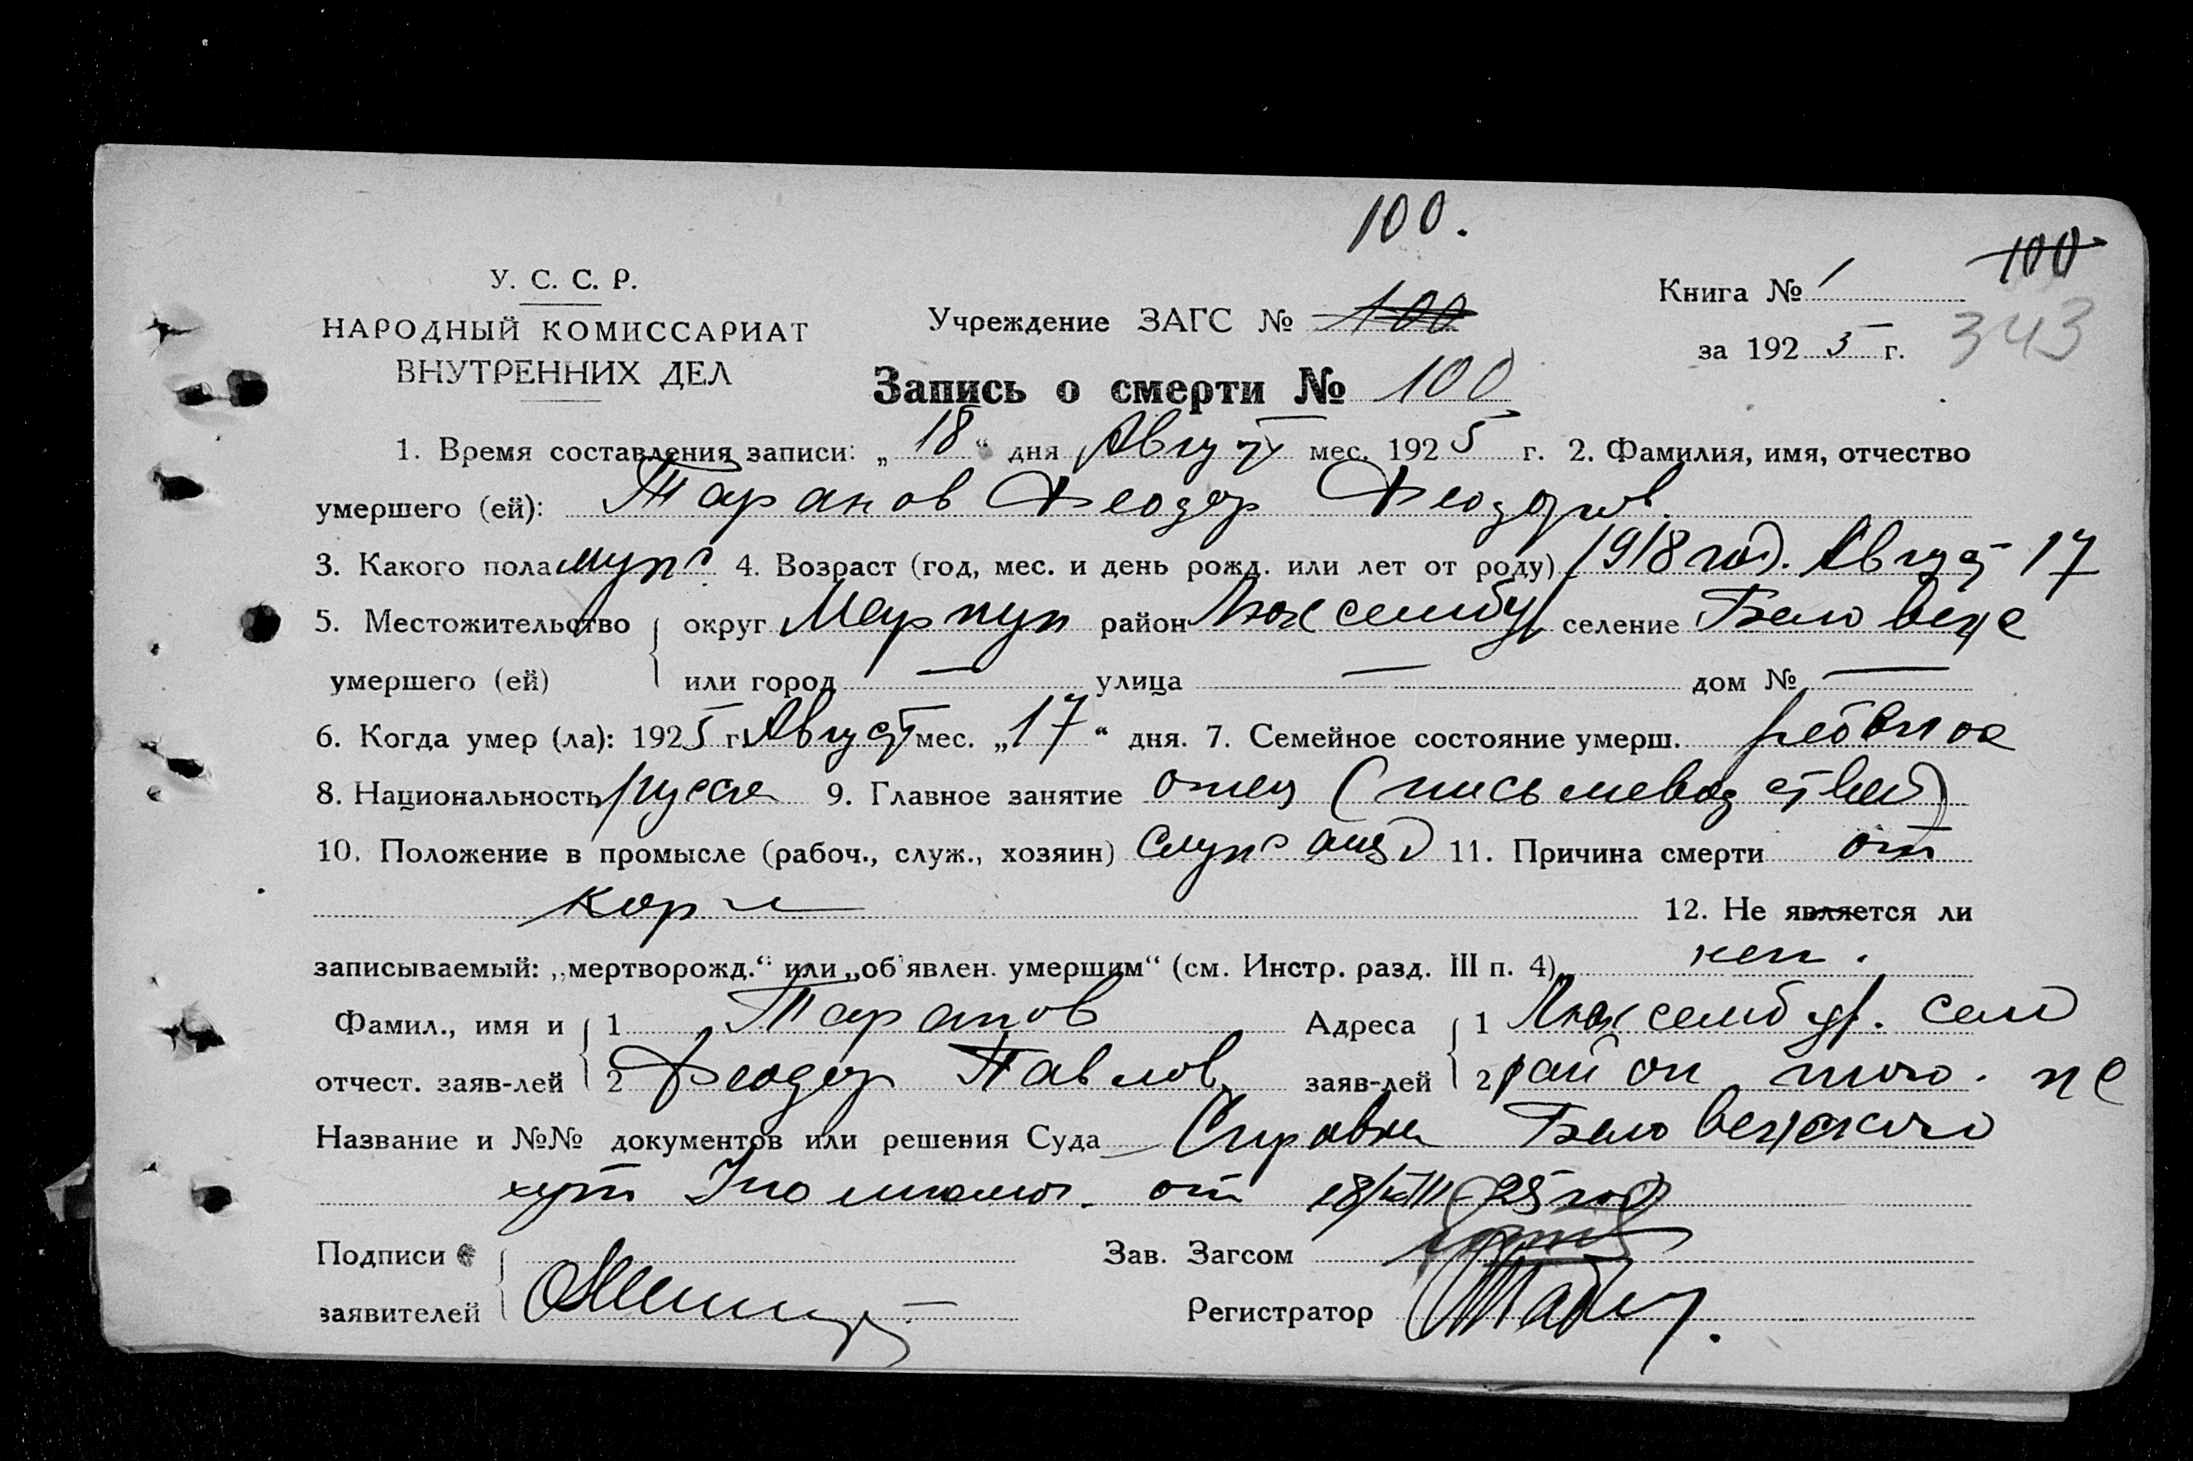 100.
У. С. С. Р.
НАРОДНЫЙ КОМИССАРИАТ
ВНУТРЕННИХ ДЕЛ
Учреждение ЗАГС № 100
Запись о смерти № 100
Книга № 1
100
за 1925 г.
343
1. Время составления записи: „18“ дня Август мес. 1925 г. 2. Фамилия, имя, отчество
умершего (ей): Таранов Феодор Феодоров.
3. Какого пола муж 4. Возраст (год, мес. и день рожд. или лет от роду) 1918 год. Август 17
5. Местожительство округ Мариуп район Люксембур селение Беловеж
умершего (ей) или город — улица — дом № —
6. Когда умер (ла): 1925 г. Август мес. „17“ дня. 7. Семейное состояние умерш.
8. Национальность русск 9. Главное занятие отец (письмеводствей)
10. Положение в промысле (рабоч., служ., хозяин) служащ 11. Причина смерти от
кори 12. Не является ли
записываемый: „мертворожд.“ или „об'явлен. умершим“ (см. Инстр. разд. III п. 4) нет.
Фамил., имя и 1 Таранов Адреса 1 Люксембур. село
отчест. заяв-лей 2 Феодор Павлов заяв-лей 2 район того же
Название и №№ документов или решения Суда Справка Беловежского
хут от 18/VIII-25 год
Подписи Зав. Загсом
заявителей Регистратор